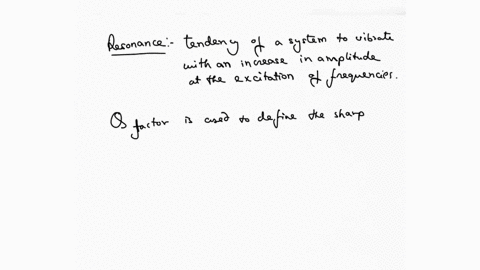 Resonance:- tendency of a system to vibrate
with an increase in amplitude
at the excitation of frequencies.
Qs factor is used to define the sharp